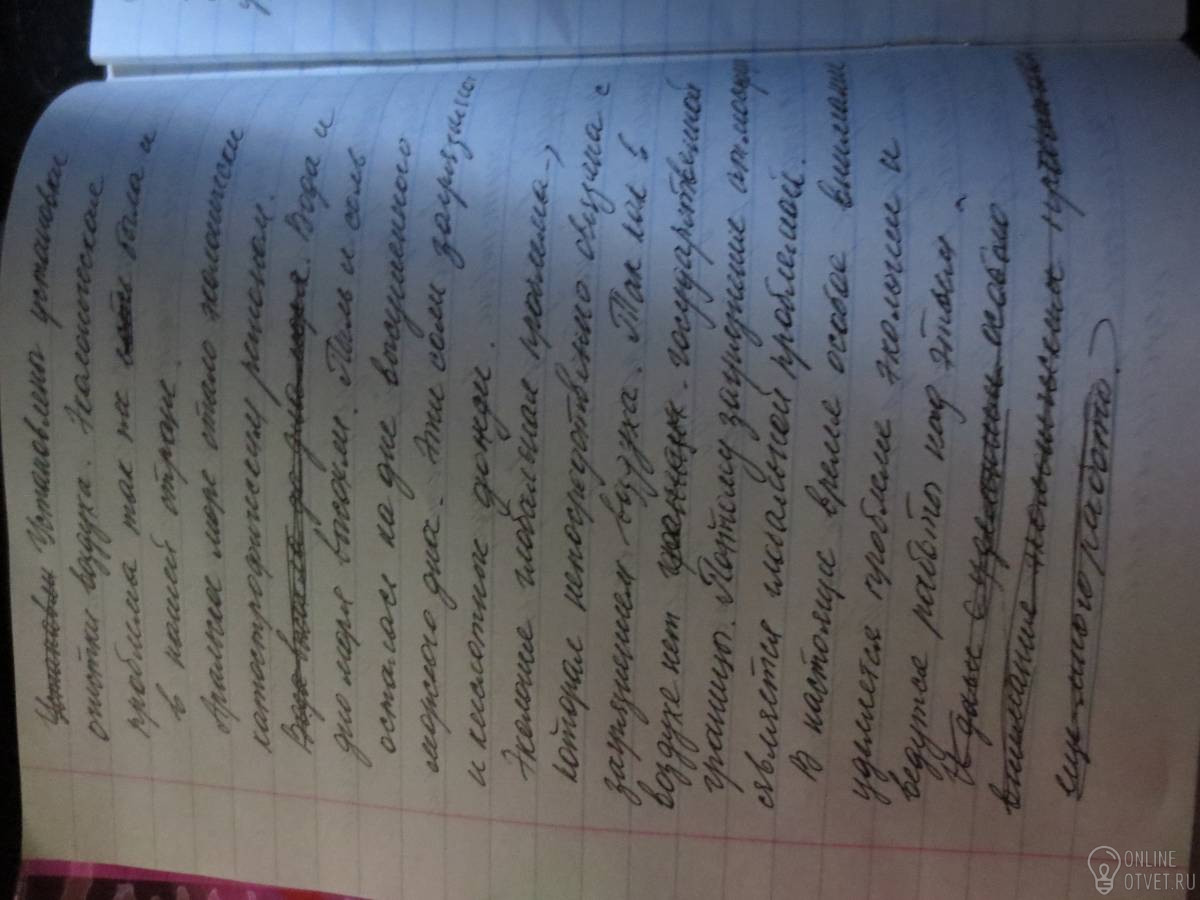 Установлены установки
отчтки воздуха. Экологическая
проблема так же была и
в нашей стране.
Аральное море стало экологически
катострофическим регионом.
Вода и
дно моря высохли. Пыль и соль
осталось на дне высушенного
морского дна. Эти соли загрязняют
и кислотные дожди.
Экология глобальная проблема →
которая непосредственно связана с
загрязнением воздуха. Так как в
воздухе нет государственной
границы. Поэтому загрязнение атмосферы
является глобальной проблемой.
В настоящее время особое внимание
уделяется проблеме экологии и
ведутся работы над этим.
особою
внимание
еще много работы.
ONLINE
OTVET.RU